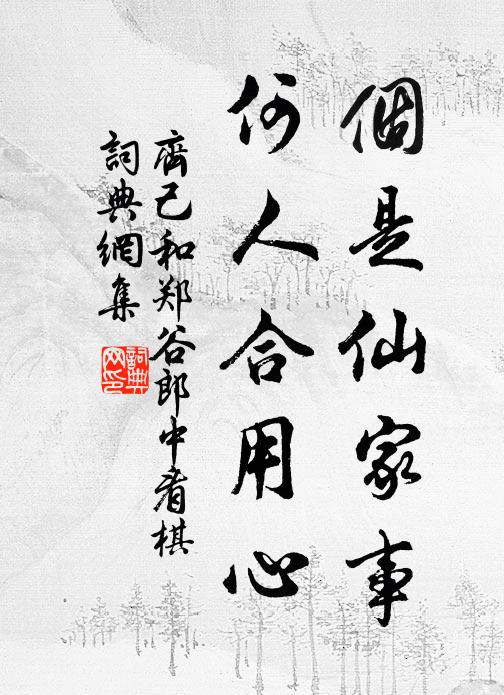 個是仙家事
何人合用心
齊己和郑谷郎中看棋
詞典網集
詞典
网印